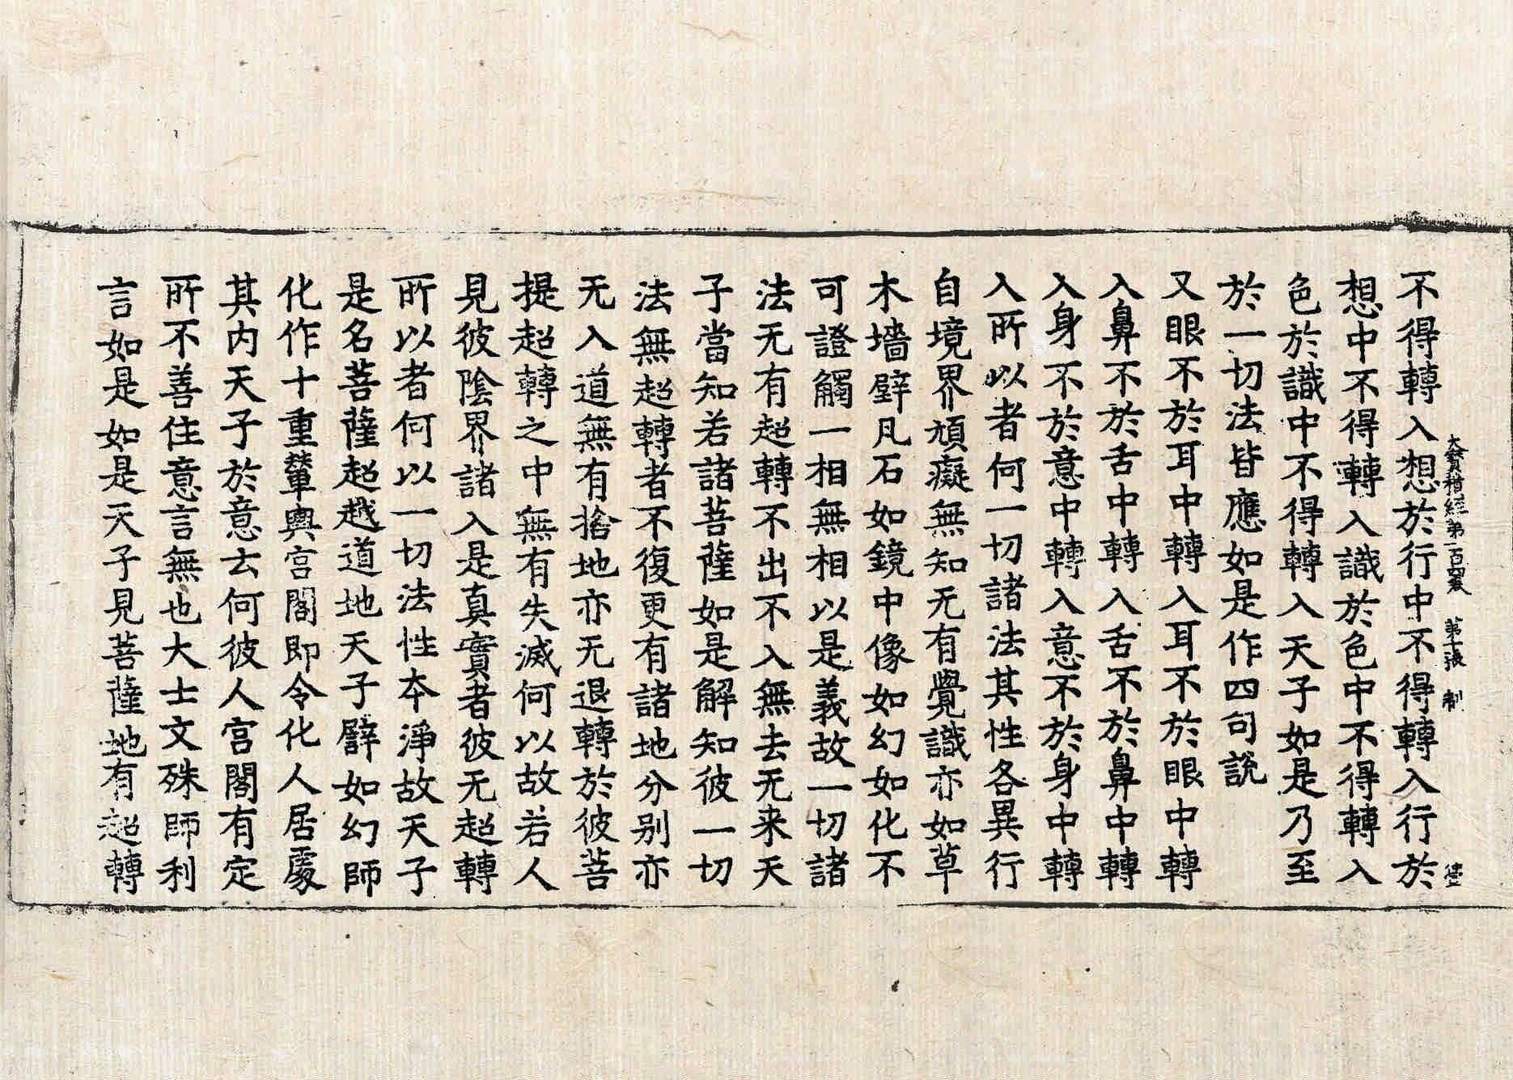 大寶積經第一百一卷 第十張 制 壁
不得轉入想於行中不得轉入行於
想中不得轉入識於色中不得轉入
色於識中不得轉入天子如是乃至
於一切法皆應如是作四句說
又眼不於耳中轉入耳不於眼中轉
入鼻不於舌中轉入舌不於鼻中轉
入身不於意中轉入意不於身中轉
入所以者何一切諸法其性各異行
自境界頑癡無知无有覺識亦如草
木墻壁凡石如鏡中像如幻如化不
可證觸一相無相以是義故一切諸
法无有超轉不出不入無去无来天
子當知若諸菩薩如是解知彼一切
法無超轉者不復更有諸地分别亦
无入道無有捨地亦无退轉於彼菩
提超轉之中無有失滅何以故若人
見彼陰界諸入是真實者彼无超轉
所以者何以一切法性本淨故天子
是名菩薩超越道地天子譬如幻師
化作十重輦輿宮閣即令化人居處
其内天子於意云何彼人宮閣有定
所不善住意言無也大士文殊師利
言如是如是天子見菩薩地有超轉